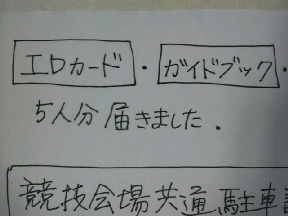 IDカード・ガイドブック・
5人分届きました.
競技会場共通駐車